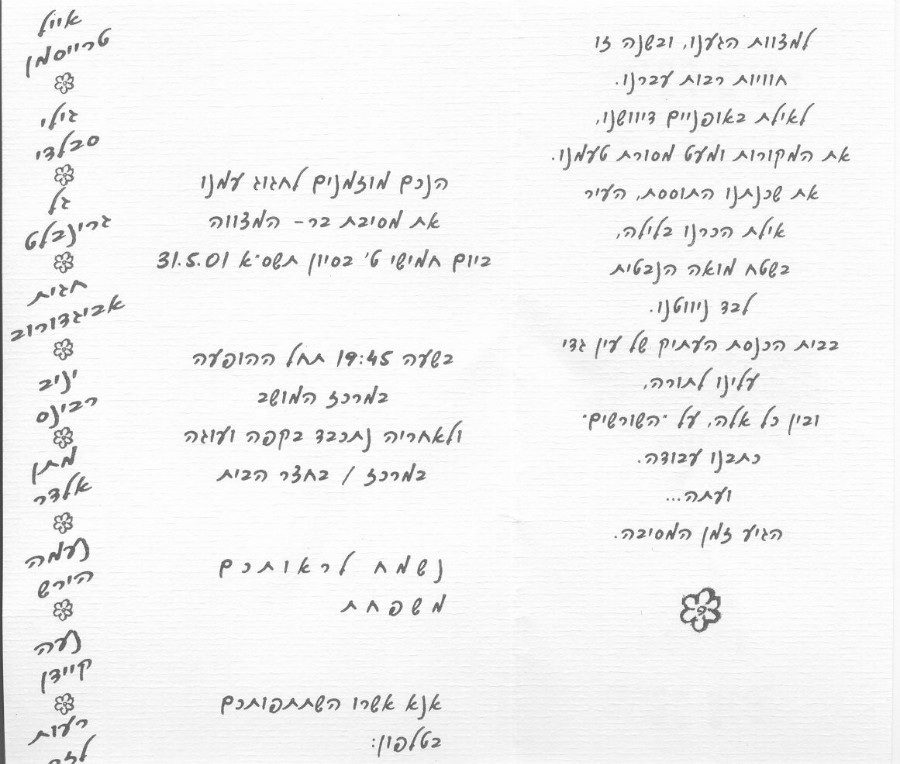 למצוות הגענו, ובשנה זו
חוויות רבות עברנו.
לאילת באופניים דיוושנו,
את המקורות ומעט מסורת טעמנו.
את שכנתנו התוססת, העיר
אילת הכרנו בלילה,
בשטח מואה הנבטית
לבד ניווטנו.
בבית הכנסת העתיק של עין גדי
עלינו לתורה,
ובין כל אלה, על "השורשים"
כתבנו עבודה.
ועתה...
הגיע זמן המסיבה.
הנכם מוזמנים לחגוג עמנו
את מסיבת בר- המצווה
ביום חמישי ט' בסיון תשס"א 31.5.01
בשעה 19:45 תחל ההופעה
במרכז המושב
ולאחריה נתכבד בקפה ועוגה
במרכז / בחצר הבית
נשמח לראותכם
משפחת
אנא אשרו השתתפותכם
בטלפון:
אייל
טרייסמן
גילי
סבלדי
גל
גרינבלט
חגית
אביגדורוב
יניב
רבינס
מתן
אלדר
נעמה
הירש
נעה
קיידן
רעות